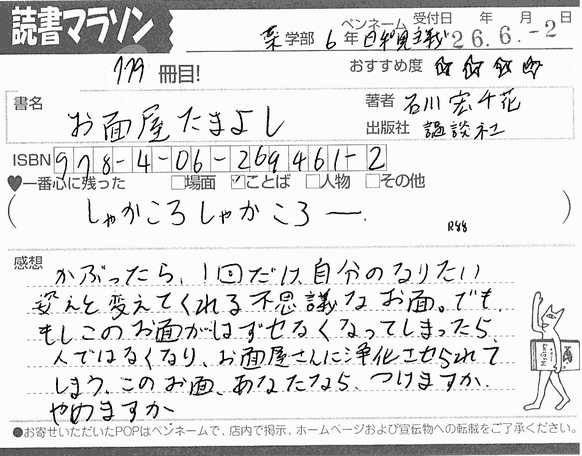 読書マラソン
ペンネーム 受付日 年 月 日
薬学部 6年 日和見主義 26.6.-2
779 冊目!
おすすめ度 ☆☆☆☆
書名 お面屋たまよし
著者 石川宏千花
出版社 講談社
ISBN 978-4-06-269461-2
♥一番心に残った □場面 ☑ことば □人物 □その他
(しゃかころしゃかころ―. P.88)
感想
かぶったら、1回だけ自分のなりたい
姿えと変えてくれる不思議なお面。でも、
もしこのお面がはずせなくなってしまったら、
人ではなくなり、お面屋さんに浄化させられて
しまう。このお面、あなたなら、つけますか、
やめますか
●お寄せいただいたPOPはペンネームで、店内で掲示、ホームページおよび宣伝物への転載をご了承ください。